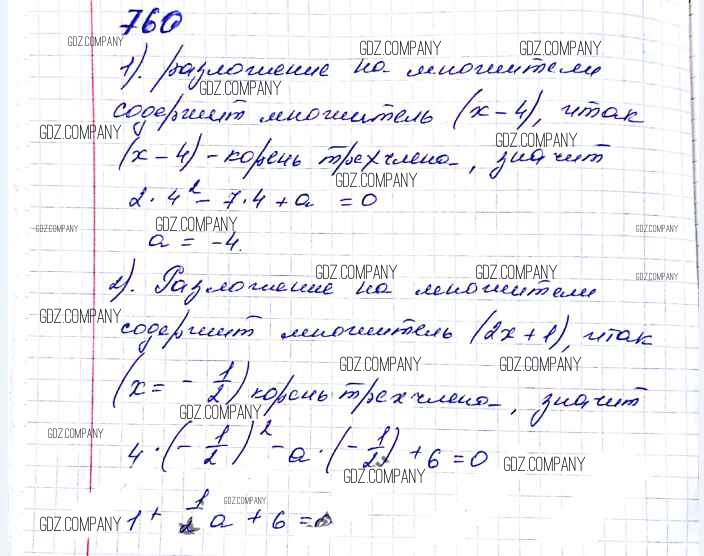 760
GDZ.COMPANY GDZ.COMPANY GDZ.COMPANY
1). разложение на множители
GDZ.COMPANY
содержит множитель (x-4), итак
GDZ.COMPANY GDZ.COMPANY
(x-4) - корень трехчлена, значит
GDZ.COMPANY
2·4² - 7·4 + a = 0
GDZ.COMPANY GDZ.COMPANY GDZ.COMPANY
a = -4.
GDZ.COMPANY GDZ.COMPANY GDZ.COMPANY
2). Разложение на множители
GDZ.COMPANY
содержит множитель (2x+1), итак
GDZ.COMPANY GDZ.COMPANY
(x = -1/2) корень трехчлена, значит
GDZ.COMPANY
GDZ.COMPANY
4·(-1/2)² - a·(-1/2) + 6 = 0 GDZ.COMPANY
GDZ.COMPANY
GDZ.COMPANY
GDZ.COMPANY 1 + 1/2 a + 6 = 0